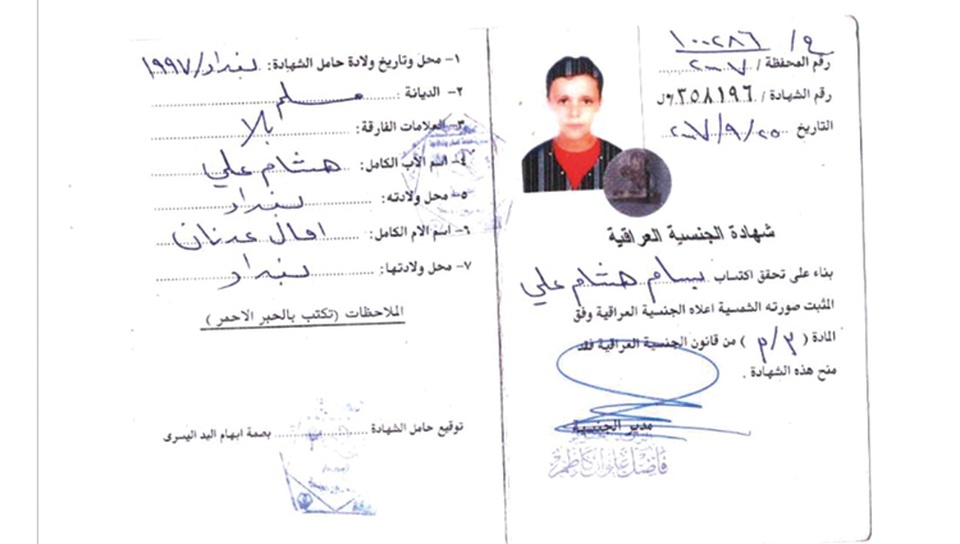 ع/ ١٠٠٢٨٦
رقم المحفظة / ٢٠٠٧
رقم الشهادة / ٣٥٨١٩٦
التاريخ ٢٠٠٧/٩/٢٥
شهادة الجنسية العراقية
بناء على تحقق اكتساب بسام هشام علي
المثبت صورته الشمسية اعلاه الجنسية العراقية وفق
المادة ( ٣/م ) من قانون الجنسية العراقية فقد
منح هذه الشهادة .
مدير الجنسية
فاضل علوان كاظم
١- محل وتاريخ ولادة حامل الشهادة: بغداد/١٩٩٧
٢- الديانة : مسلم
٣- العلامات الفارقة: بلا
٤- اسم الاب الكامل: هشام علي
٥- محل ولادته: بغداد
٦- اسم الام الكامل: امال عدنان
٧- محل ولادتها: بغداد
الملاحظات (تكتب بالحبر الاحمر)
توقيع حامل الشهادة بصمة ابهام اليد اليسرى